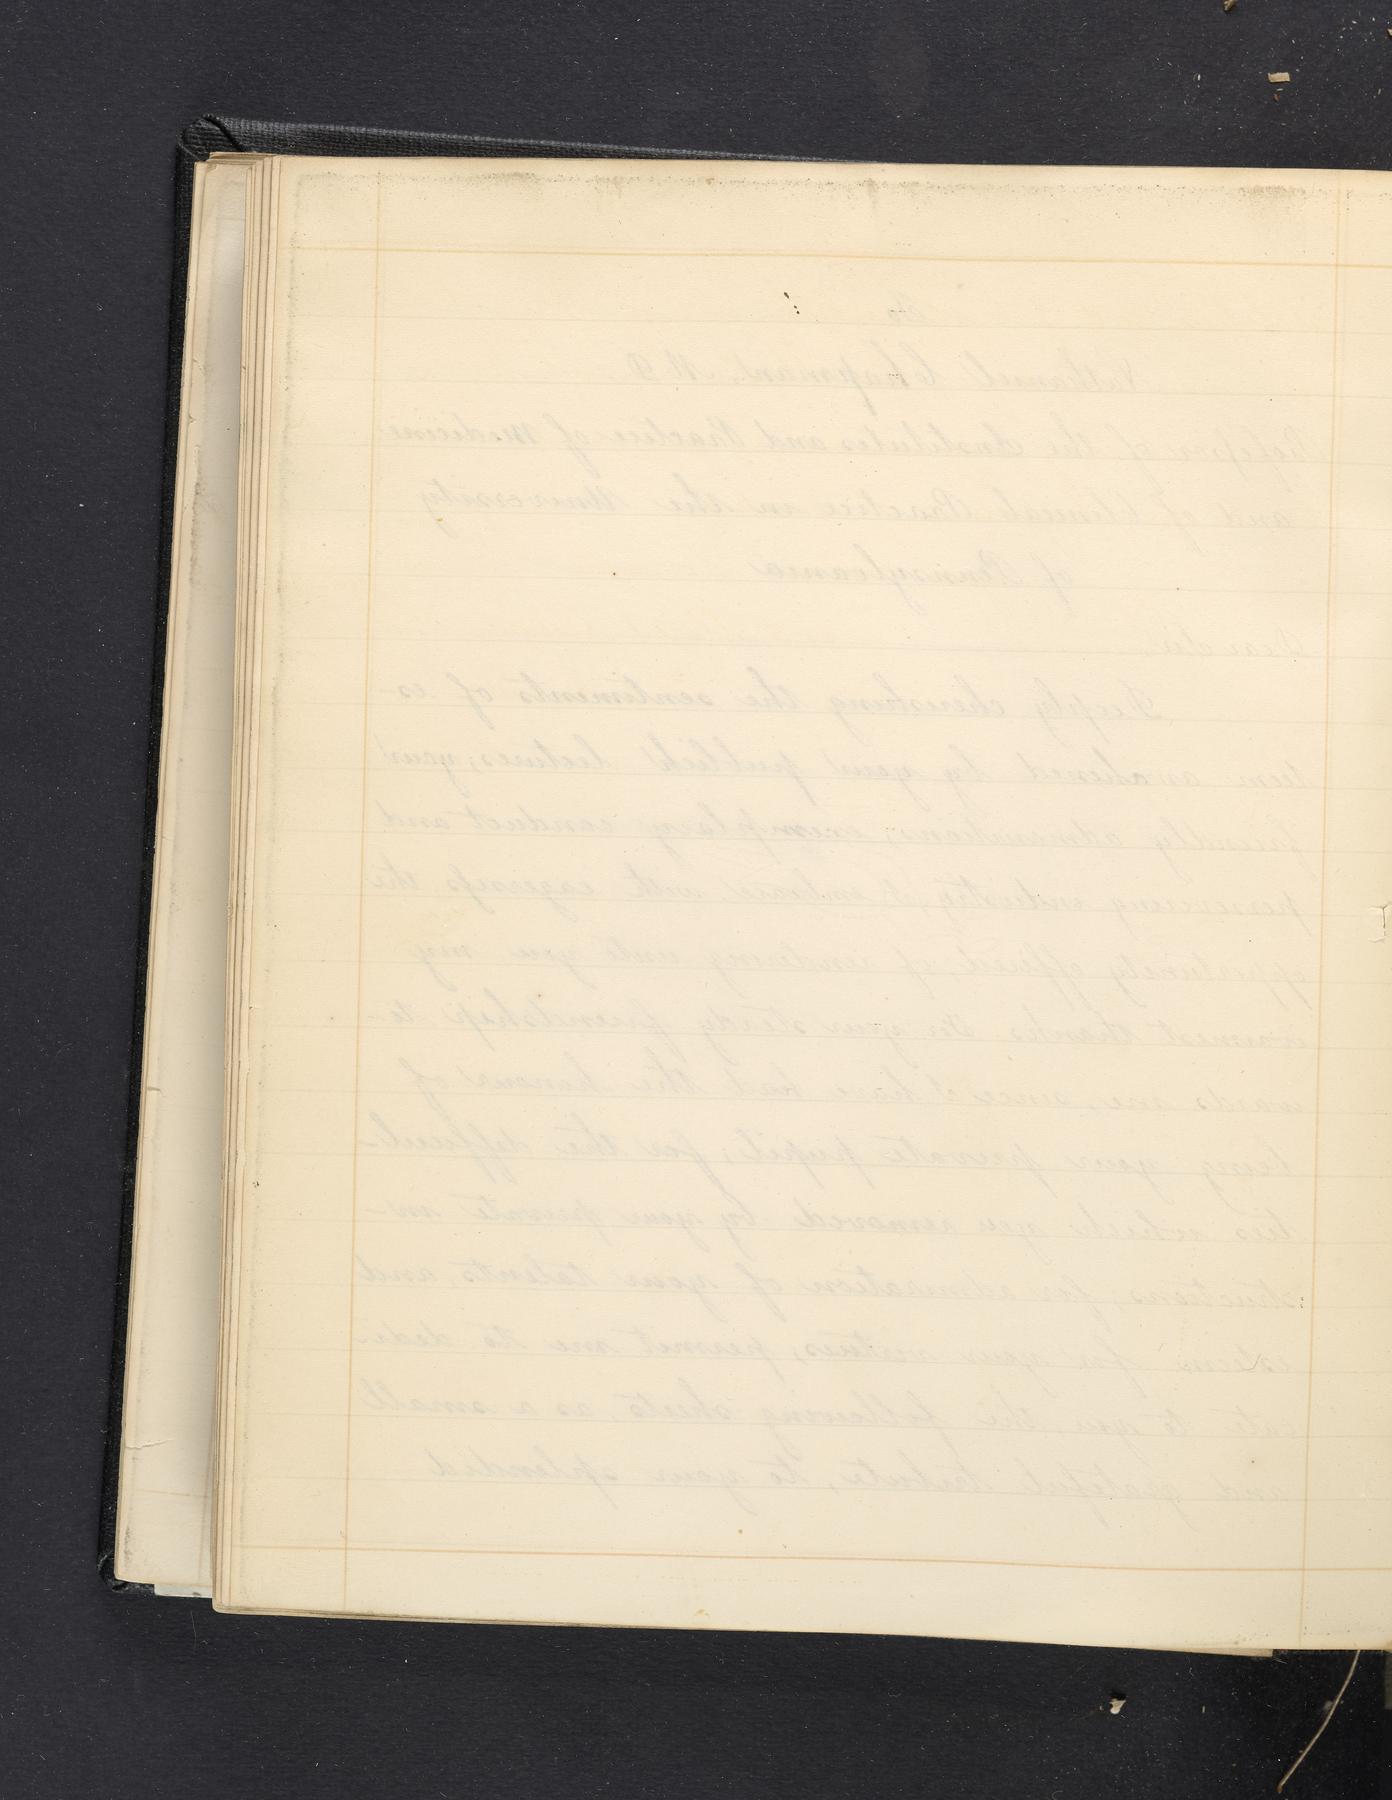 To
Nathaniel Chapman, M.D.
Professor of the Institutes and Practice of Medicine
and of Clinical Practice in the University
of Pennsylvania
Dear Sir
Deeply cherishing the sentiments of es-
teem awakened by your publick lectures, your
friendly admonitions, exemplary conduct and
persevering industry, I embrace with eagerness the
opportunity offered of rendering unto you my
warmest thanks for your steady friendship to-
wards me, since I have had the honour of
being your private pupil; for the difficul-
ties which you removed by your private in-
structions; for admiration of your talents, and
esteem for your virtues, permit me to dedi-
cate to you, the following sheets, as a small
and grateful tribute, to your splendid